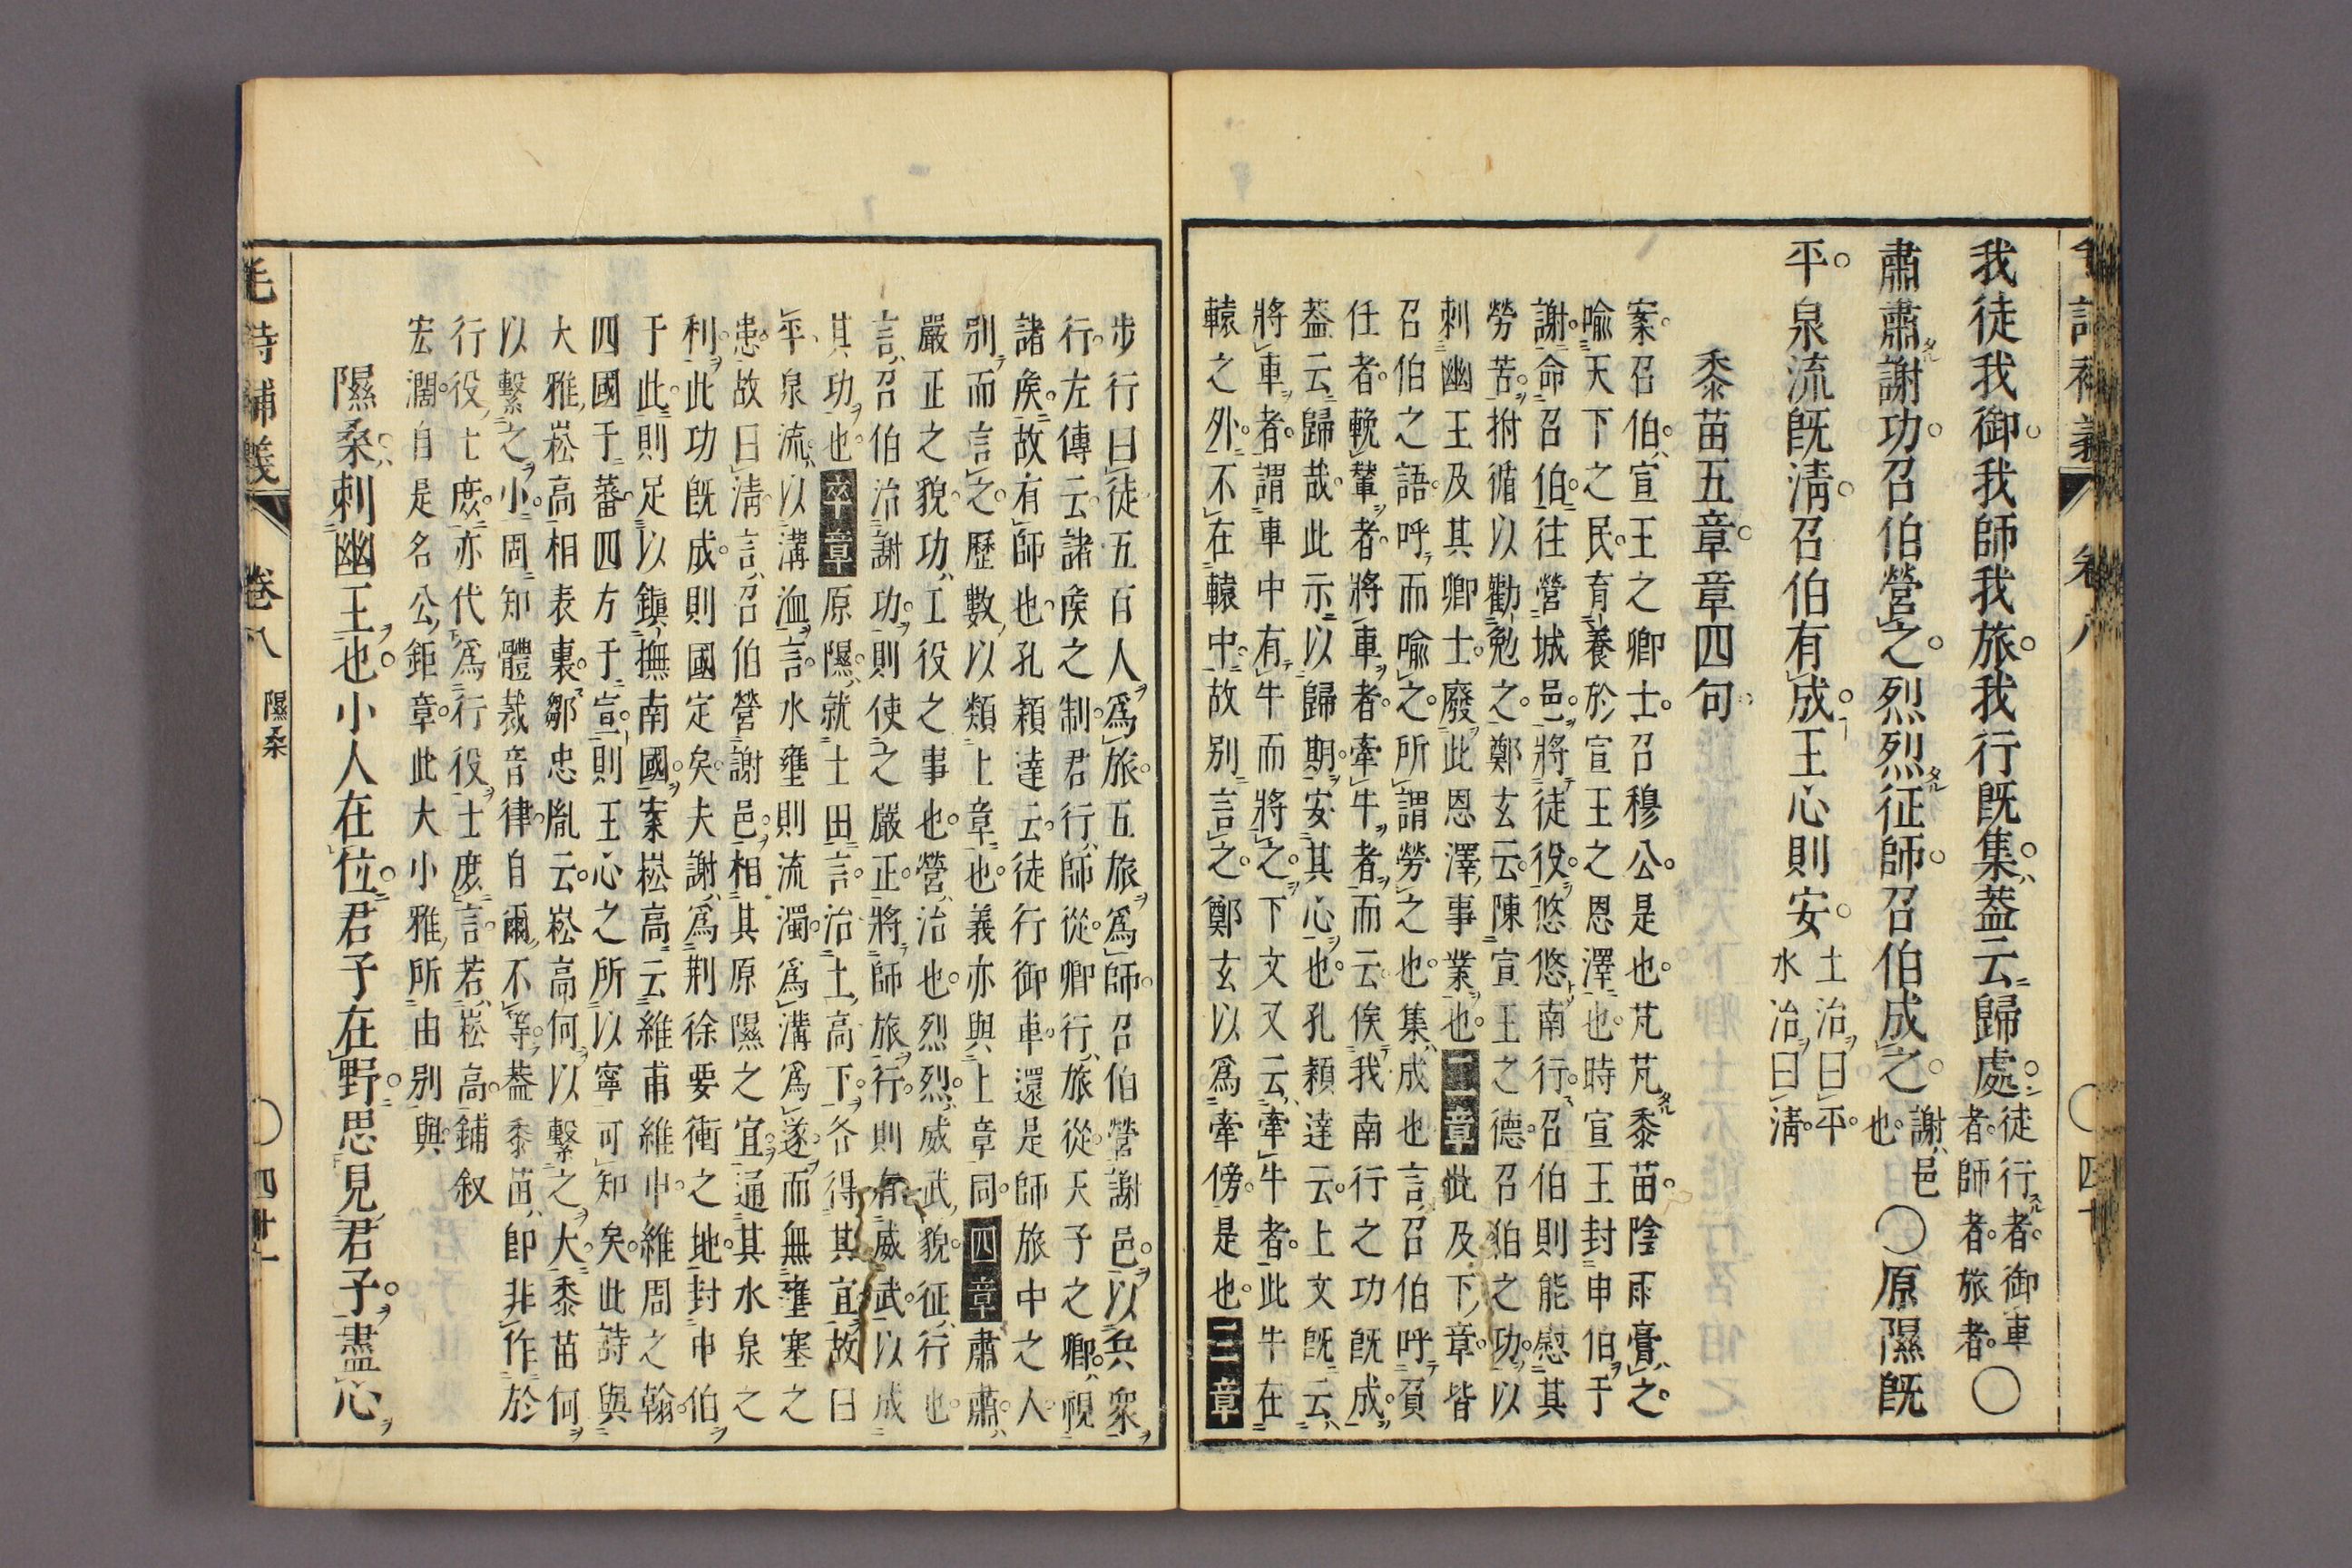 我徒我御我師我旅我行既集蓋云歸處徒行者御車者師者旅者〇
肅肅謝功召伯營之烈烈征師召伯成之謝邑也〇原隰既
平泉流既淸召伯有成王心則安土治曰平水治曰淸
黍苗五章章四句
案召伯宣王之卿士召穆公是也芃芃黍苗陰雨膏之
喩天下之民育養於宣王之恩澤也時宣王封申伯于
謝命召伯往營城邑將徒役悠悠南行召伯則能慰其
勞苦拊循以勸勉之鄭玄云陳宣王之德召伯之功以
刺幽王及其卿士廢此恩澤事業也二章此及下章皆
召伯之語呼而喩之所謂勞之也集成也言召伯呼負
任者輓輦者將車者牽牛者而云俟我南行之功既成
蓋云歸哉此示以歸期安其心也孔穎達云上文既云
將車者謂車中有牛而將之下文又云牽牛者此牛在
轅之外不在轅中故別言之鄭玄以爲牽傍是也三章
步行曰徒五百人爲旅五旅爲師召伯營謝邑以兵衆
行左傳云諸矦之制君行師從卿行旅從天子之卿視
諸矦故有師也孔穎達云徒行御車還是師旅中之人
別而言之歷數以類上章也義亦與上章同四章肅肅
嚴正之貌功工役之事也營治也烈烈威武貌征行也
言召伯治謝功則使之嚴正將師旅行則有威武以成
其功也卒章原隰就土田言治土高下各得其宜故曰
平泉流以溝洫言水壅則流濁爲溝爲遂而無壅塞之
患故曰淸言召伯營謝邑相其原隰之宜通其水泉之
利此功既成則國定矣夫謝爲荆徐要衝之地封申伯
于此則足以鎭撫南國案崧高云維甫維申維周之翰
四國于蕃四方于宣則王心之所以寧可知矣此詩與
大雅崧高相表裏鄒忠胤云崧高何以繫之大黍苗何
以繫之小周知體裁音律自爾不等蓋黍苗卽非作於
行役士庶亦代爲行役士庶言若崧高鋪叙
宏濶自是名公鉅章此大小雅所由別與
隰桑刺幽王也小人在位君子在野思見君子盡心
毛詩補義 卷八 隰桑 〇四十一